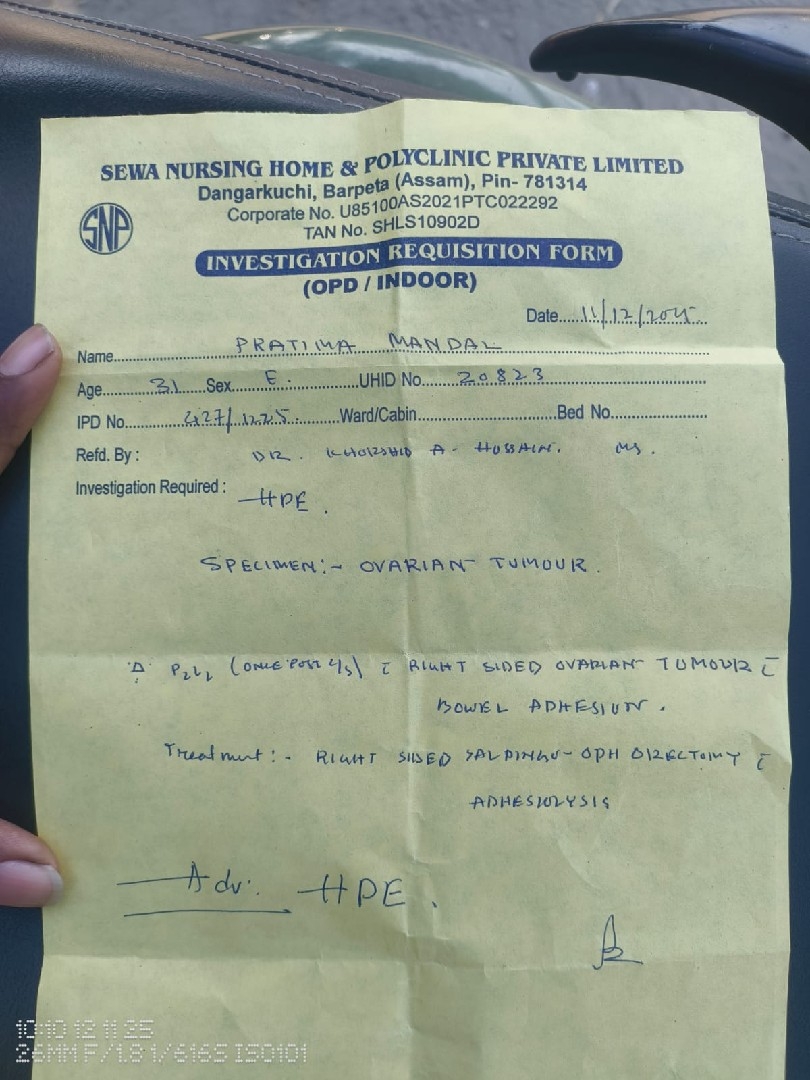 SEWA NURSING HOME & POLYCLINIC PRIVATE LIMITED
Dangarkuchi, Barpeta (Assam), Pin- 781314
Corporate No. U85100AS2021PTC022292
TAN No. SHLS10902D
SNP
INVESTIGATION REQUISITION FORM
(OPD / INDOOR)
Date.....11/12/2025
Name..... PRATIMA MANDAL
Age..... 31 Sex..... F. .....UHID No..... 20823
IPD No..... 427/1225. .....Ward/Cabin..........Bed No..........
Refd. By : DR. KHORSHID A. HUSSAIN. MS.
Investigation Required : HPE.
SPECIMEN:- OVARIAN TUMOUR.
P2L2 (ONCE POST C/S) c̄ RIGHT SIDED OVARIAN TUMOUR c̄
BOWEL ADHESION.
Treatment:- RIGHT SIDED SALPINGO-OPHORECTOMY c̄
ADHESIOLYSIS
Adv. HPE.
10:10 12 11 25
26MM F/1.8 1/616S ISO101